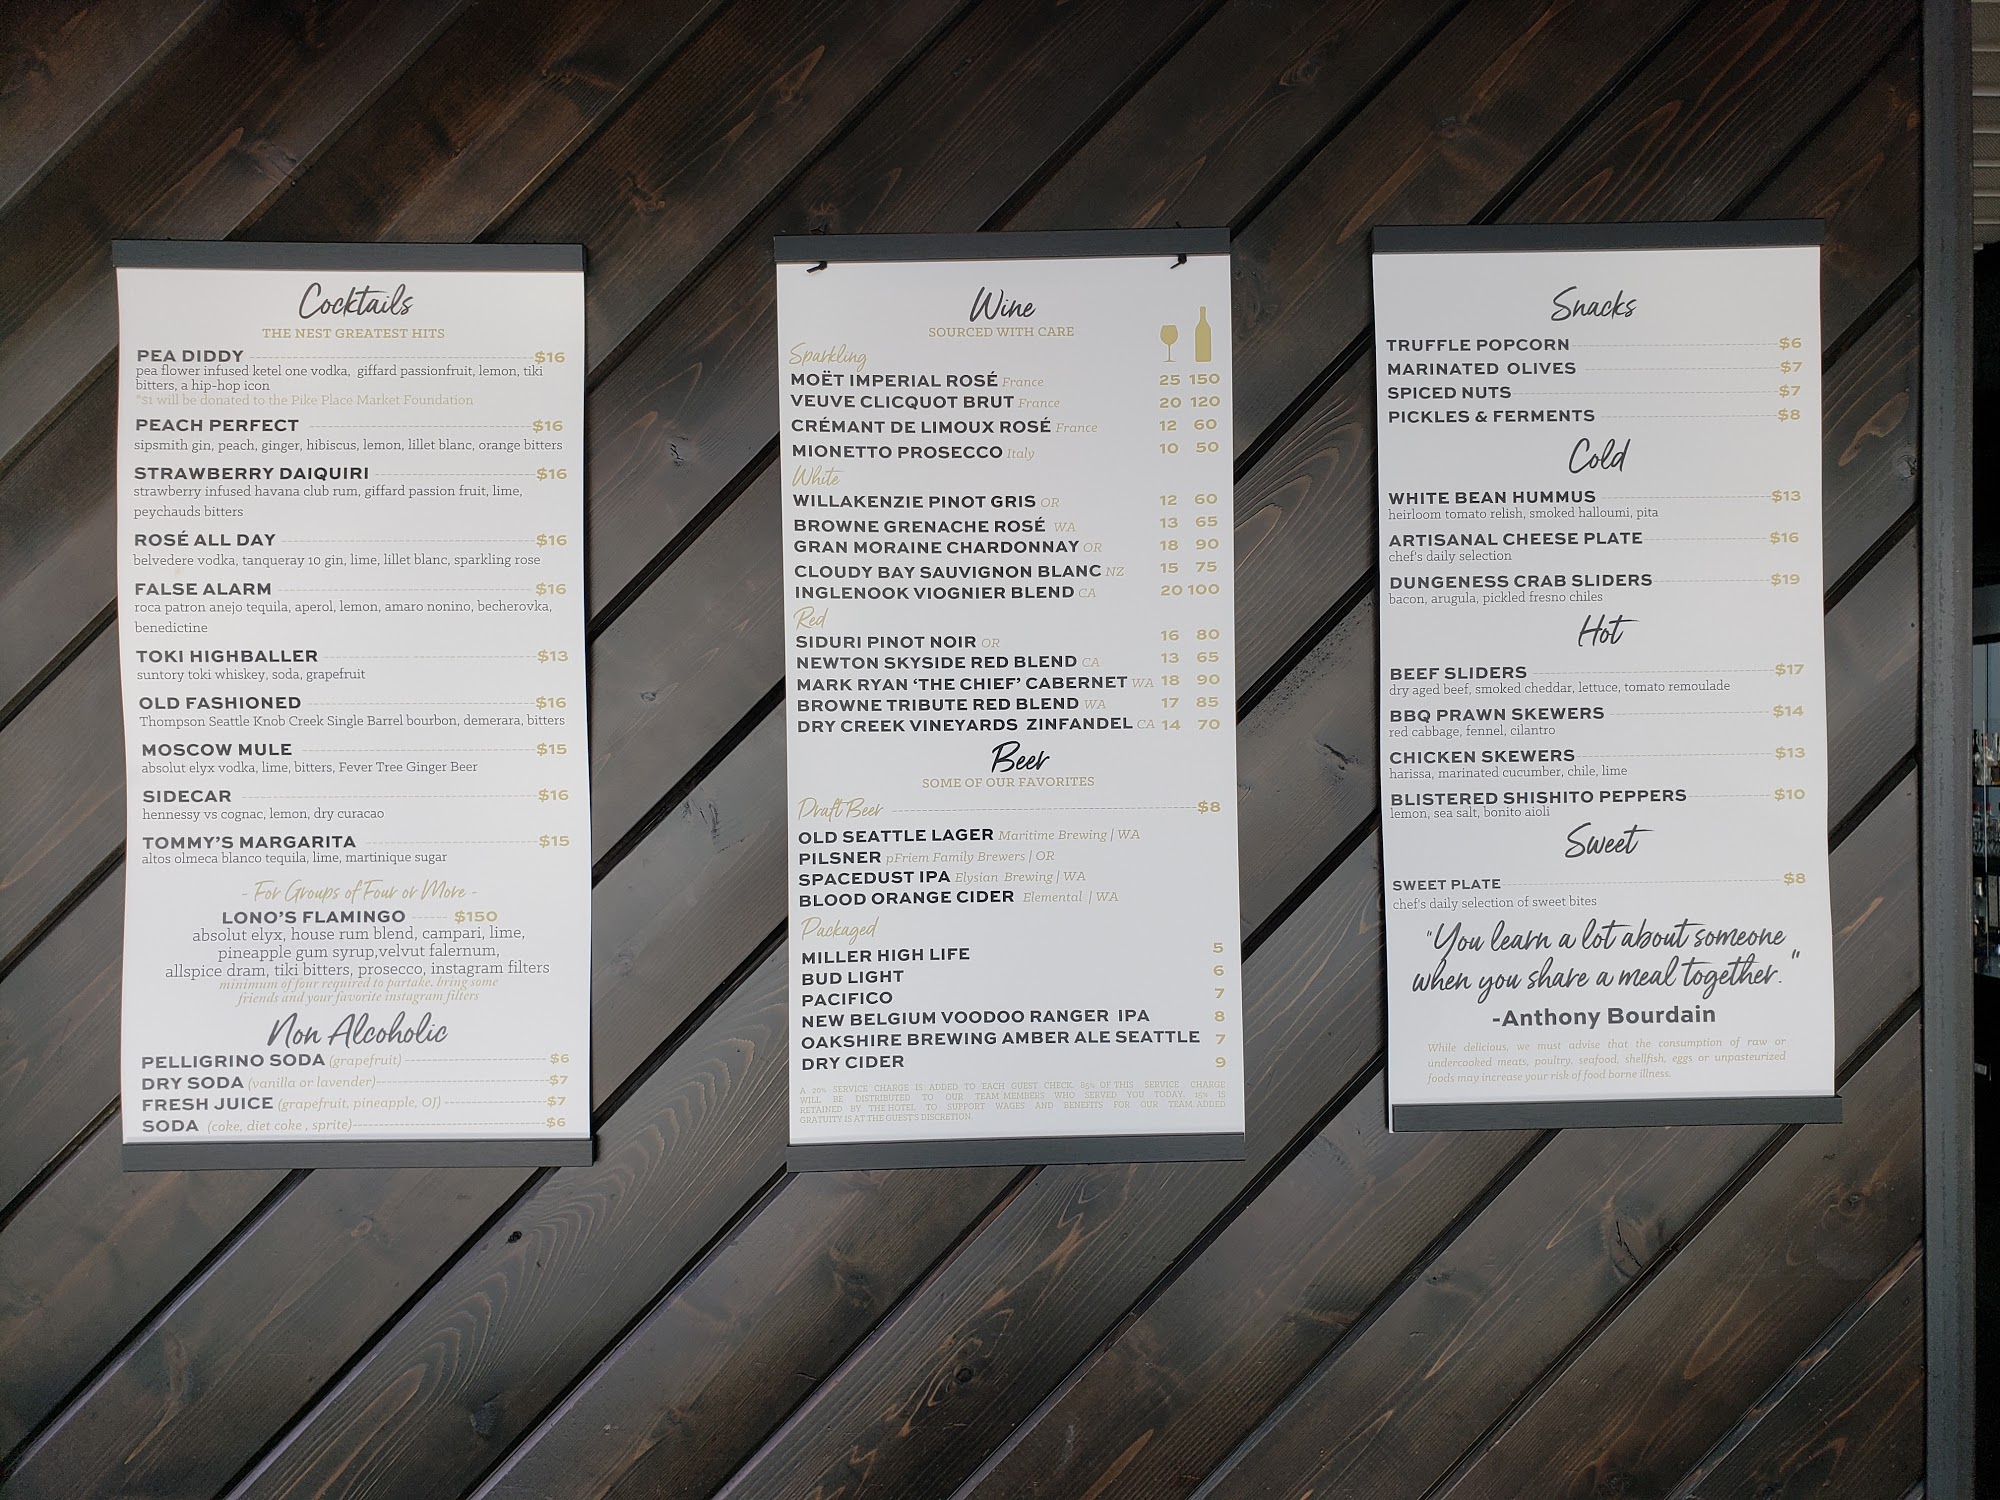 Cocktails
THE NEST GREATEST HITS
PEA DIDDY $16
pea flower infused ketel one vodka, giffard passionfruit, lemon, tiki
bitters, a hip-hop icon
*$1 will be donated to the Pike Place Market Foundation
PEACH PERFECT $16
sipsmith gin, peach, ginger, hibiscus, lemon, lillet blanc, orange bitters
STRAWBERRY DAIQUIRI $16
strawberry infused havana club rum, giffard passion fruit, lime,
peychauds bitters
ROSÉ ALL DAY $16
belvedere vodka, tanqueray 10 gin, lime, lillet blanc, sparkling rose
FALSE ALARM $16
roca patron anejo tequila, aperol, lemon, amaro nonino, becherovka,
benedictine
TOKI HIGHBALLER $13
suntory toki whiskey, soda, grapefruit
OLD FASHIONED $16
Thompson Seattle Knob Creek Single Barrel bourbon, demerara, bitters
MOSCOW MULE $15
absolut elyx vodka, lime, bitters, Fever Tree Ginger Beer
SIDECAR $16
hennessy vs cognac, lemon, dry curacao
TOMMY'S MARGARITA $15
altos olmeca blanco tequila, lime, martinique sugar
- For Groups of Four or More -
LONO'S FLAMINGO $150
absolut elyx, house rum blend, campari, lime,
pineapple gum syrup,velvut falernum,
allspice dram, tiki bitters, prosecco, instagram filters
minimum of four required to partake. bring some
friends and your favorite instagram filters
Non Alcoholic
PELLIGRINO SODA (grapefruit) $6
DRY SODA (vanilla or lavender) $7
FRESH JUICE (grapefruit, pineapple, OJ) $7
SODA (coke, diet coke , sprite) $6
Wine
SOURCED WITH CARE
Sparkling
MOËT IMPERIAL ROSÉ France 25 150
VEUVE CLICQUOT BRUT France 20 120
CRÉMANT DE LIMOUX ROSÉ France 12 60
MIONETTO PROSECCO Italy 10 50
White
WILLAKENZIE PINOT GRIS OR 12 60
BROWNE GRENACHE ROSÉ WA 13 65
GRAN MORAINE CHARDONNAY OR 18 90
CLOUDY BAY SAUVIGNON BLANC NZ 15 75
INGLENOOK VIOGNIER BLEND CA 20 100
Red
SIDURI PINOT NOIR OR 16 80
NEWTON SKYSIDE RED BLEND CA 13 65
MARK RYAN 'THE CHIEF' CABERNET WA 18 90
BROWNE TRIBUTE RED BLEND WA 17 85
DRY CREEK VINEYARDS ZINFANDEL CA 14 70
Beer
SOME OF OUR FAVORITES
Draft Beer $8
OLD SEATTLE LAGER Maritime Brewing | WA
PILSNER pFriem Family Brewers | OR
SPACEDUST IPA Elysian Brewing | WA
BLOOD ORANGE CIDER Elemental | WA
Packaged
MILLER HIGH LIFE 5
BUD LIGHT 6
PACIFICO 7
NEW BELGIUM VOODOO RANGER IPA 8
OAKSHIRE BREWING AMBER ALE SEATTLE 7
DRY CIDER 9
A 20% SERVICE CHARGE IS ADDED TO EACH GUEST CHECK. 85% OF THIS SERVICE CHARGE
WILL BE DISTRIBUTED TO OUR TEAM MEMBERS WHO SERVED YOU TODAY. 15% IS
RETAINED BY THE HOTEL TO SUPPORT WAGES AND BENEFITS FOR OUR TEAM. ADDED
GRATUITY IS AT THE GUEST'S DISCRETION.
Snacks
TRUFFLE POPCORN $6
MARINATED OLIVES $7
SPICED NUTS $7
PICKLES & FERMENTS $8
Cold
WHITE BEAN HUMMUS $13
heirloom tomato relish, smoked halloumi, pita
ARTISANAL CHEESE PLATE $16
chef's daily selection
DUNGENESS CRAB SLIDERS $19
bacon, arugula, pickled fresno chiles
Hot
BEEF SLIDERS $17
dry aged beef, smoked cheddar, lettuce, tomato remoulade
BBQ PRAWN SKEWERS $14
red cabbage, fennel, cilantro
CHICKEN SKEWERS $13
harissa, marinated cucumber, chile, lime
BLISTERED SHISHITO PEPPERS $10
lemon, sea salt, bonito aioli
Sweet
SWEET PLATE $8
chef's daily selection of sweet bites
"You learn a lot about someone
when you share a meal together."
-Anthony Bourdain
While delicious, we must advise that the consumption of raw or
undercooked meats, poultry, seafood, shellfish, eggs or unpasteurized
foods may increase your risk of food borne illness.